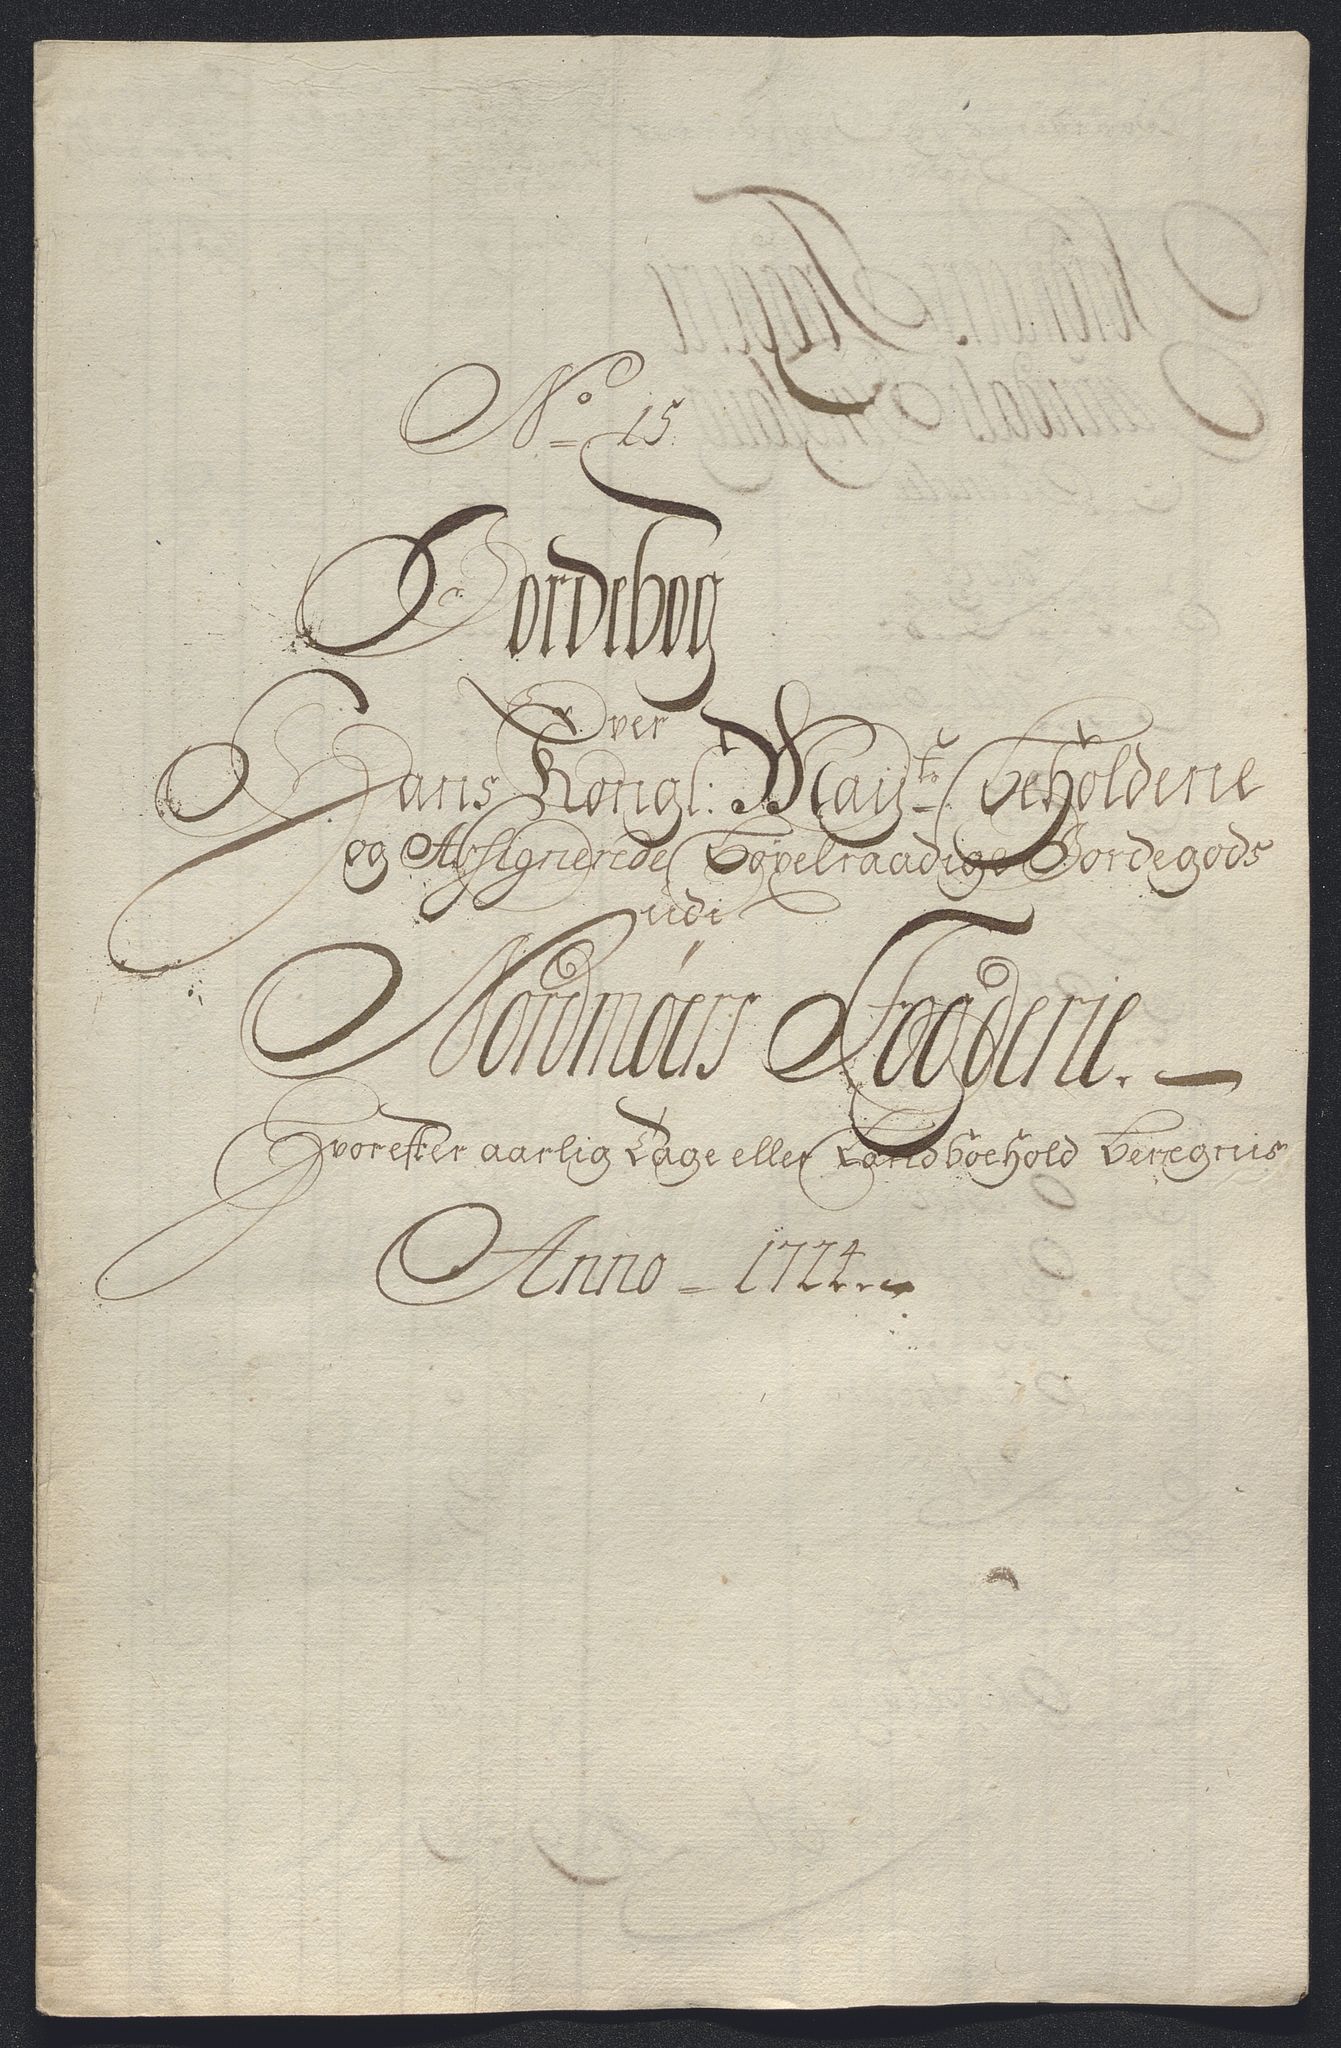 No 15.
Jordebog
Over
Hans Kongl: Mayts beholdene
og Assignerede bøxelraadige Jordegods
udi
Nordmøers Fogderie.
Hvorefter aarlig Tage eller Landboehold beregnis
Anno 1724.